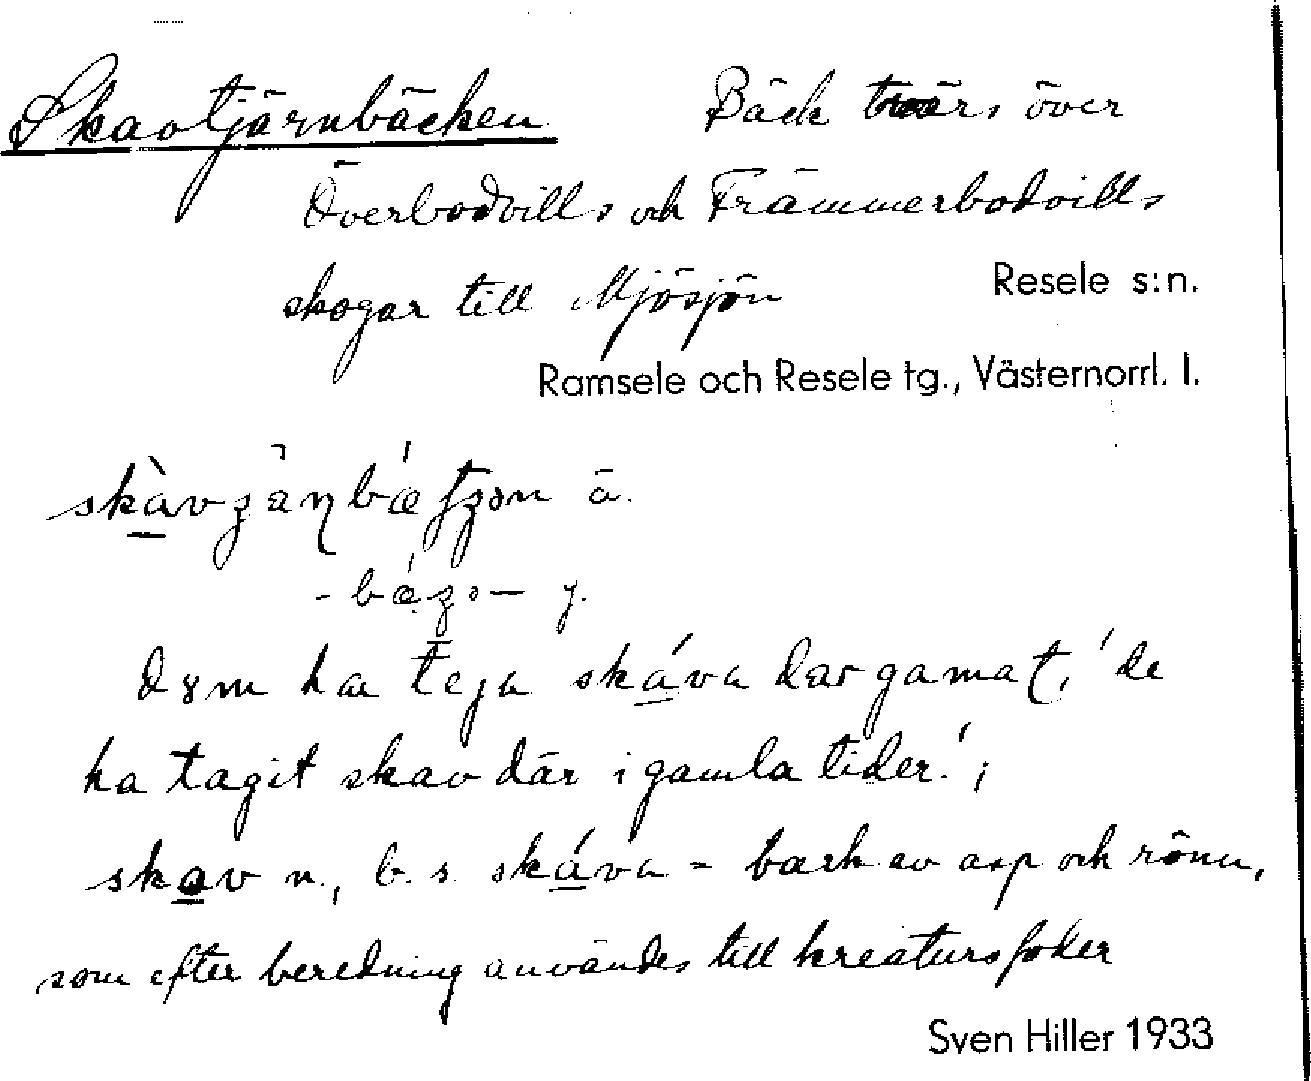 Skavtjärnbäcken Bäck tvärs över
Överbodvills och Främmerbodvills
skogar till Mjösjön Resele s:n.
Ramsele och Resele tg., Västernorrl. l.
ä.
y.
ha skáva gamat, 'de
ha tagit skav där i gamla tider.';
skav n., b. s. skáva = bark av asp och rönn,
som efter beredning användes till kreatursfoder
Sven Hiller 1933